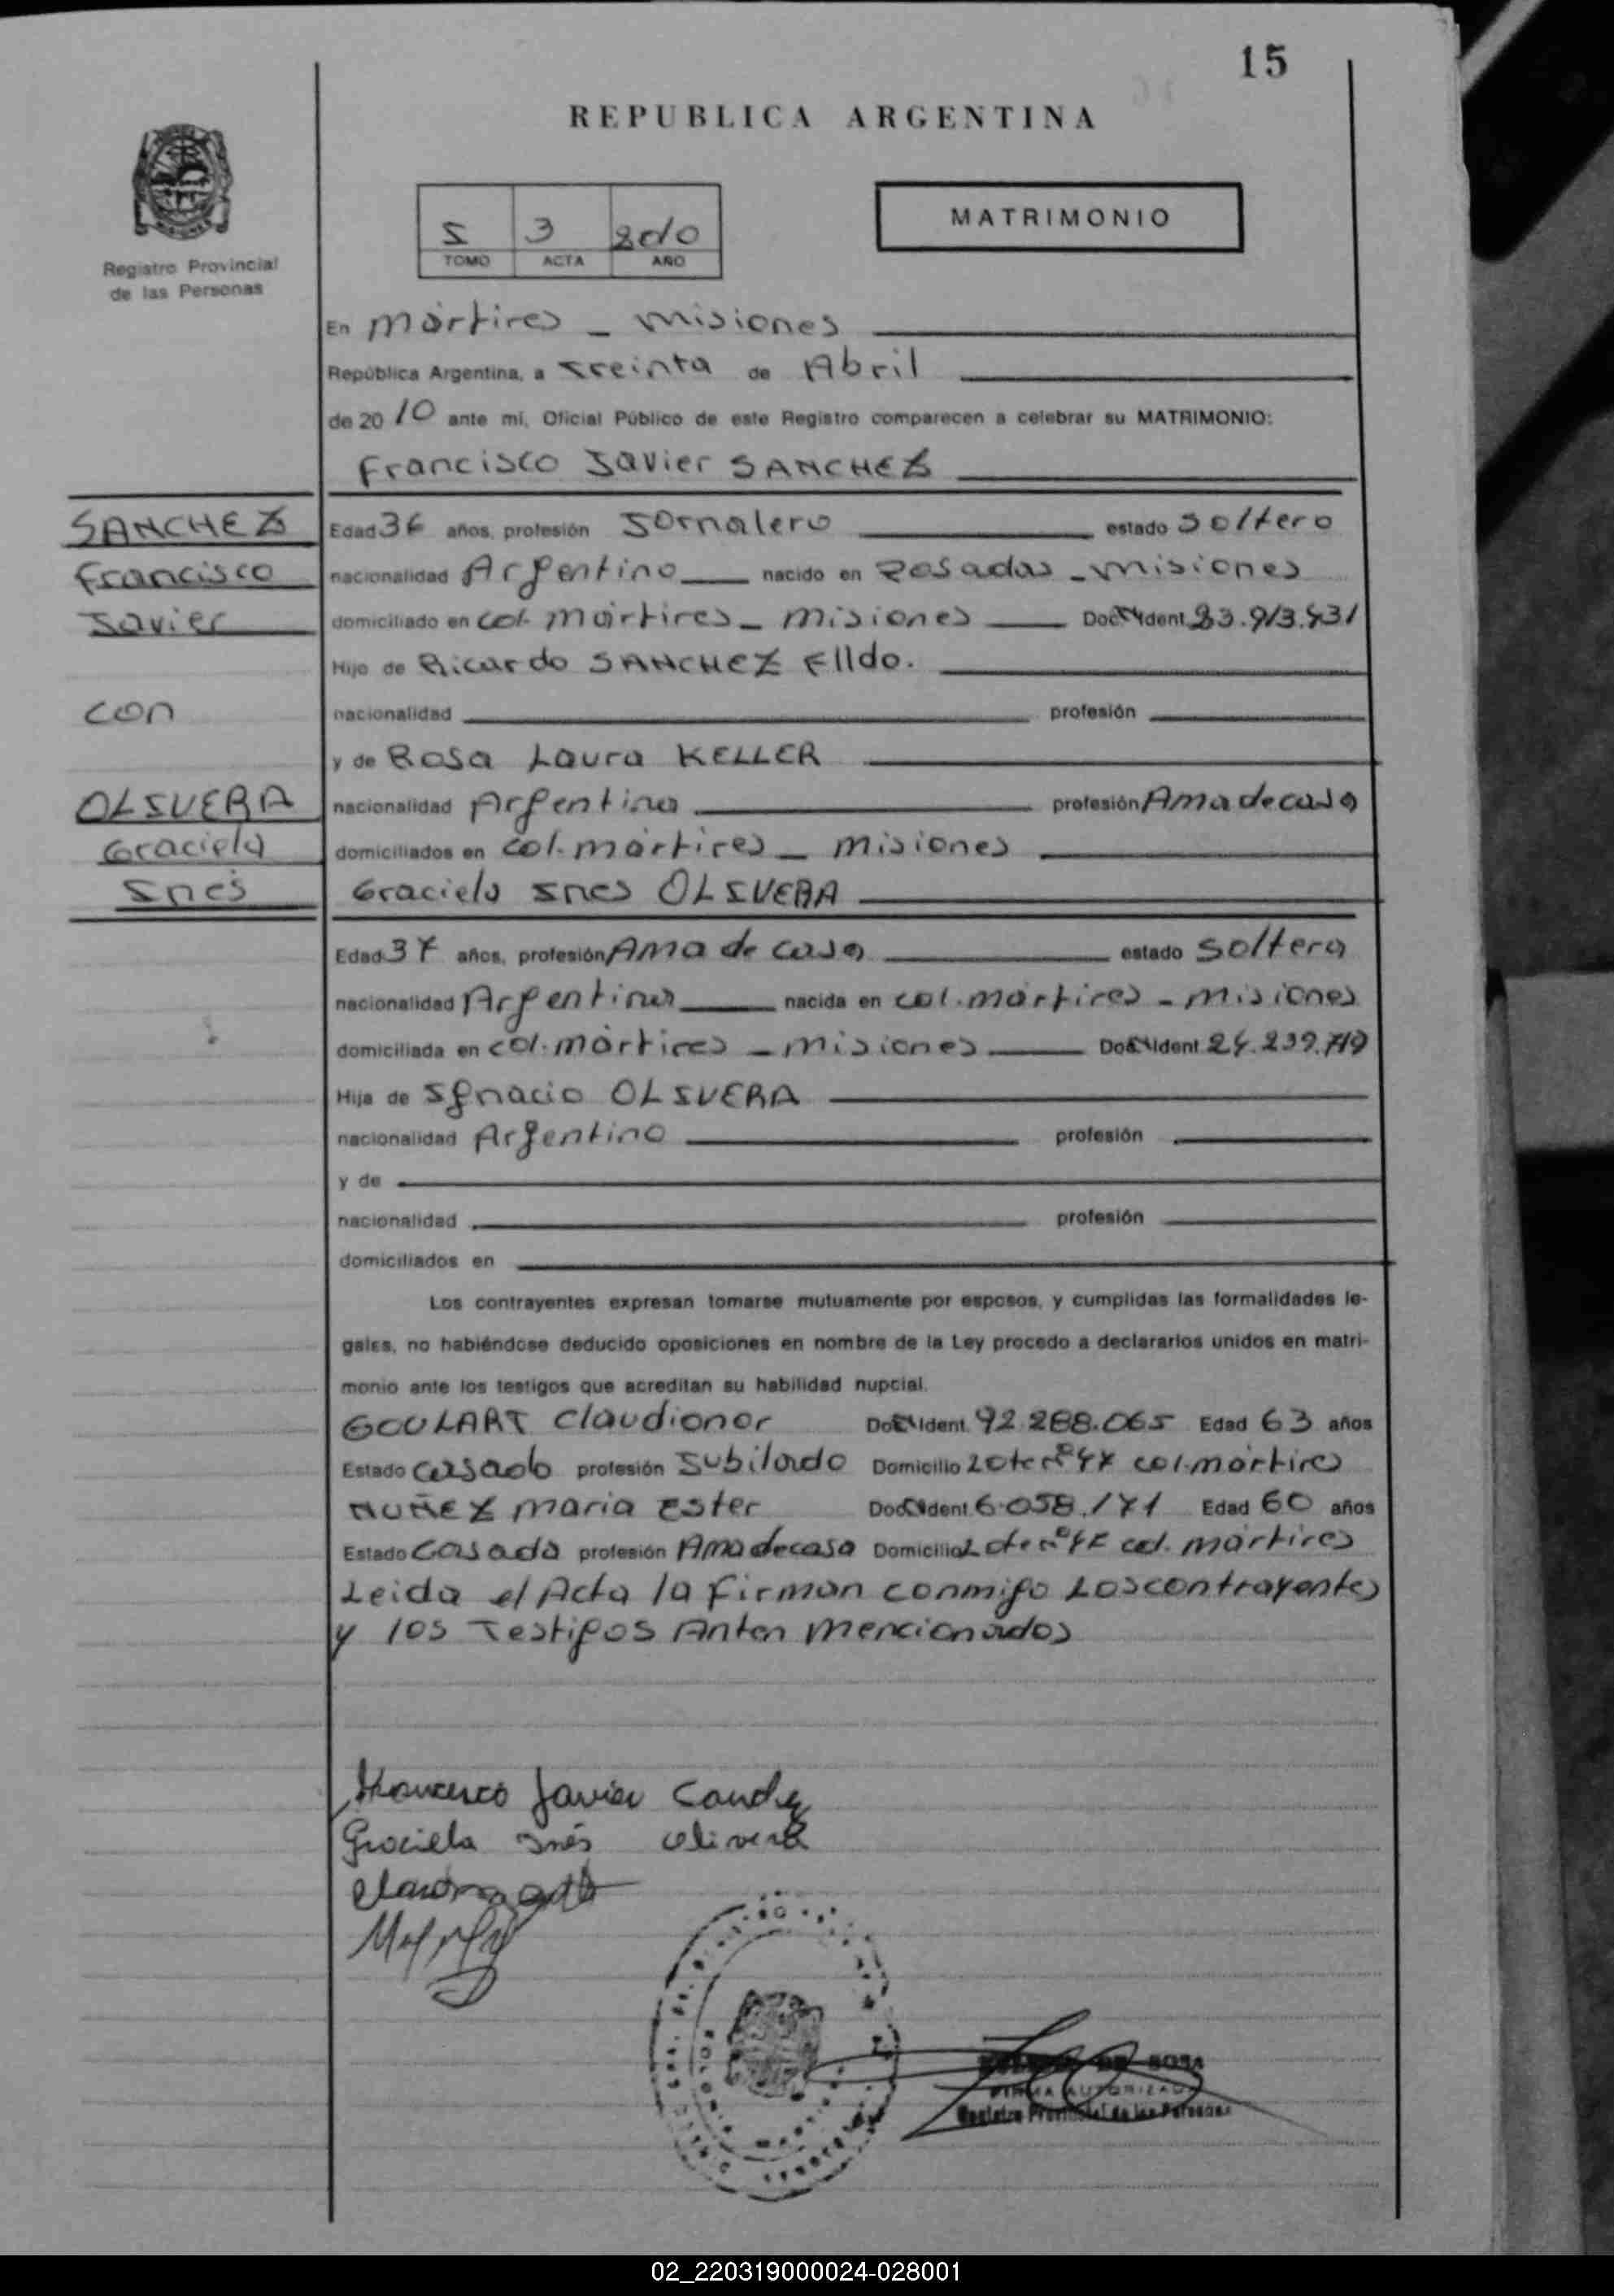 15
REPUBLICA ARGENTINA
Registro Provincial
de las Personas
I 3 2010
TOMO ACTA AÑO
MATRIMONIO
En mártires - misiones
República Argentina, a treinta de Abril
de 2010 ante mi, Oficial Público de este Registro comparecen a celebrar su MATRIMONIO:
Francisco Javier SANCHEZ
SANCHEZ
Francisco
Javier
con
OLIVERA
Graciela
Inés
Edad 36 años, profesión Jornalero estado soltero
nacionalidad Argentino nacido en Posadas - misiones
domiciliado en col. mártires - misiones Doc. Ident. 23.913.431
Hijo de Ricardo SANCHEZ Flldo.
nacionalidad profesión
y de Rosa Laura KELLER
nacionalidad Argentina profesión Ama de casa
domiciliados en col. mártires - misiones
Graciela Ines OLIVERA
Edad 37 años, profesión Ama de casa estado soltera
nacionalidad Argentina nacida en col. mártires - misiones
domiciliada en col. mártires - misiones Doc. Ident. 24.239.719
Hija de Ignacio OLIVERA
nacionalidad Argentino profesión
y de
nacionalidad profesión
domiciliados en
Los contrayentes expresan tomarse mutuamente por esposos, y cumplidas las formalidades le-
gales, no habiéndose deducido oposiciones en nombre de la Ley procedo a declararlos unidos en matri-
monio ante los testigos que acreditan su habilidad nupcial.
GOULART Claudionor Doc. Ident. 92.288.065 Edad 63 años
Estado casado profesión Jubilado Domicilio Lote nº 47 col. mártires
NUÑEZ maria Ester Doc. Ident. 6.058.171 Edad 60 años
Estado Casada profesión Ama de casa Domicilio Lote nº 47 col. mártires
Leida el Acta la firman conmigo Los contrayentes
y los Testigos Anten mencionados
Francisco Javier Sanchez
Graciela Inés Olivera
DE SOSA
FIRMA AUTORIZADA
Registro Provincial de las Personas
02_220319000024-028001